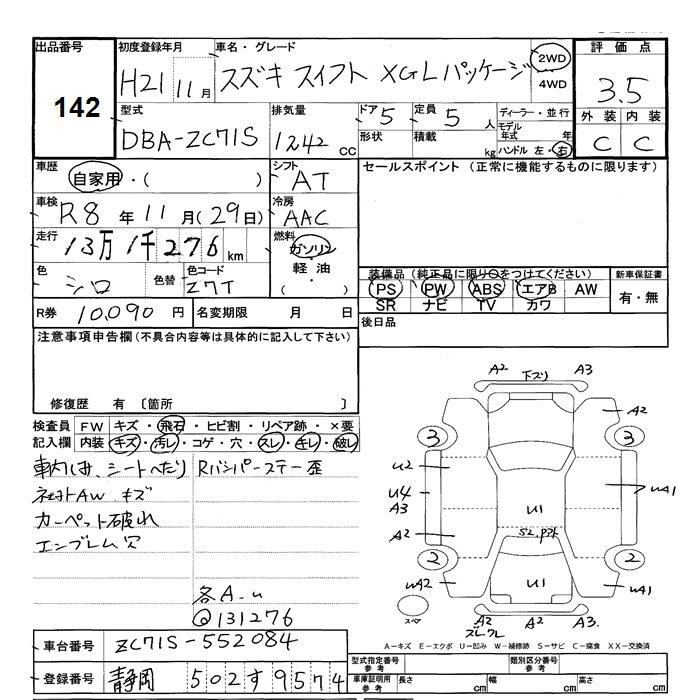 出品番号
142
初度登録年月
H21 11月
車名・グレード
スズキ スイフト XGLパッケージ
2WD
4WD
評価点
3.5
外装 内装
C C
型式
DBA-ZC71S
排気量
1242 cc
ドア 5
形状
定員 5 人
積載 kg
ディーラー・並行
モデル年式 年
ハンドル 左・右
車歴
自家用・( )
シフト
AT
セールスポイント (正常に機能するものに限ります)
車検
R8年11月(29日)
冷房
AAC
走行
13万1千276km
燃料
ガソリン
軽油
( )
色
シロ
色替
色コード
Z7T
装備品 (純正品に限り○をつけてください)
PS PW ABS エアB AW
SR ナビ TV カワ
新車保証書
有・無
R券 10,090円
名変期限 月 日
後日品
注意事項申告欄(不具合内容等は具体的に記入して下さい)
修復歴 有 〔箇所 〕
検査員記入欄
FW キズ・飛石・ヒビ割・リペア跡・×要
内装 キズ・汚レ・コゲ・穴・スレ・キレ・破レ
車内しみ、シートへたり
Rバンパーステー歪
AW キズ
カーペット破れ
エンブレム穴
各A-u
@131276
A2 下ズリ A3
A2
3 3
U2
U4
A3
A2
U1
UA1
2 2
UA2
U1
UA1
A2 A2 A3
スペア
A-キズ E-エクボ U-凹み W-補修跡 S-サビ C-腐食 XX-交換済
車台番号
ZC71S-552084
登録番号
静岡 502す9574
型式指定番号 参考
類別区分番号 参考
車庫証明用 参考
長さ cm 幅 cm 高さ cm